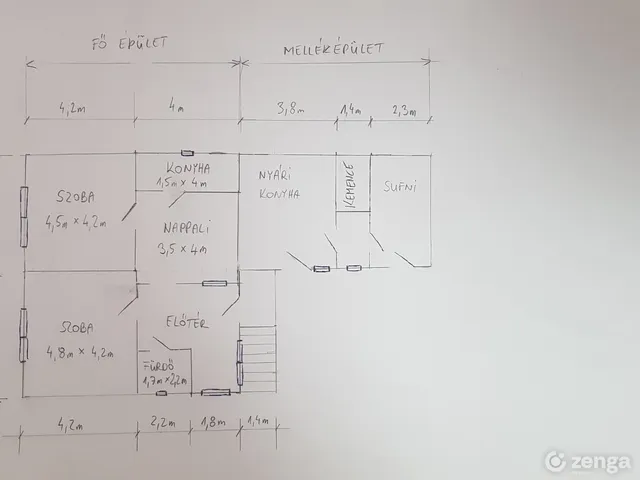 FŐ ÉPÜLET
MELLÉKÉPÜLET
4,2m
4m
3,8m
1,4m
2,3m
KONYHA
1,5m × 4m
SZOBA
4,5m × 4,2m
NAPPALI
3,5 × 4m
NYÁRI
KONYHA
KEMENCE
SUFNI
SZOBA
4,8m × 4,2m
ELŐTÉR
FÜRDŐ
1,7m × 2,2m
4,2m
2,2m
1,8m
1,4m
zenga